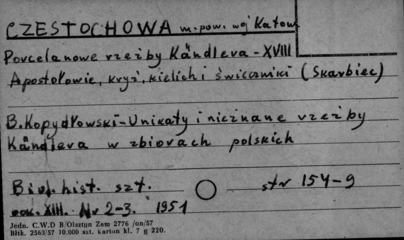 CZESTOCHOWA m. pow. woj Katow
Porcelanowe rzeźby Kändlera - XVIII
Apostołowie, krzyż, kielich i świeczniki (Skarbiec)
B. Kopydłowski - Unikaty i nieznane rzeźby
Kändlera w zbiorach polskich
Biul. hist. szt. str 154-9
rok. XIII. Nr 2-3. 1951
Jedn. C.W.D B/Olsztyn Zam 2776 /on/57
Bltk. 2563/57 10.000 szt. karton kl. 7 g 220.